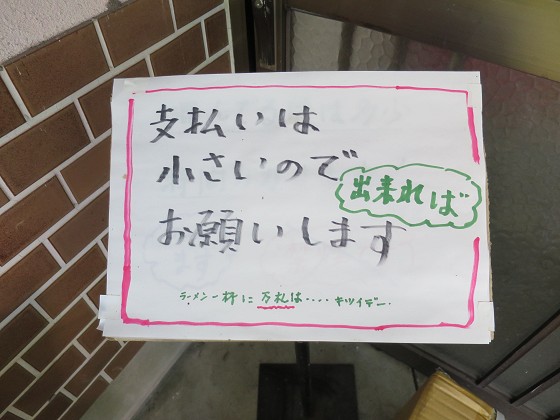 支払いは
小さいので
出来れば
お願いします
ラーメン一杯に万札は‥‥キツイデー.